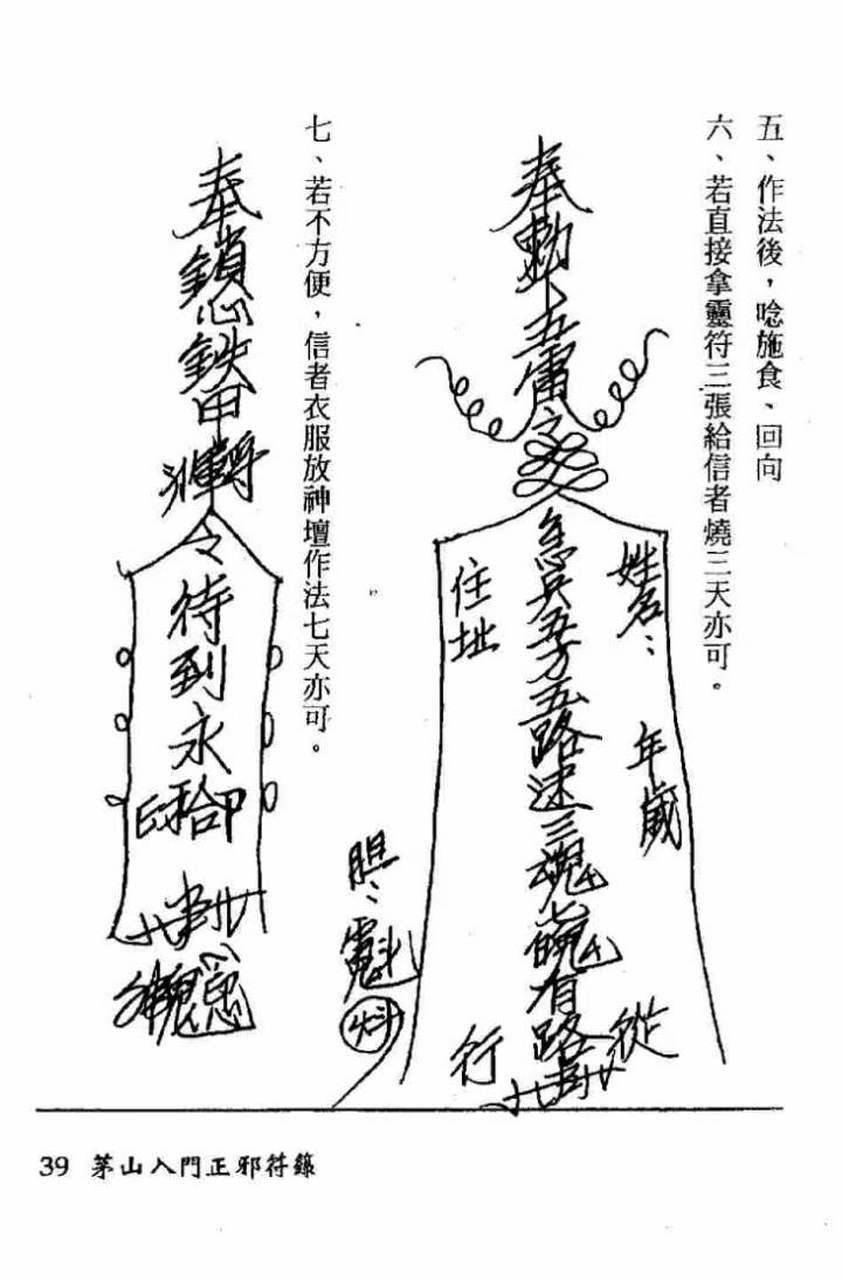 五、作法後，唸施食、回向
六、若直接拿靈符三張給信者燒三天亦可。
奉勅下五雷之
姓名：
年歲
急兵五方五路速三魂七魄有路
從
住址
行
胆：
七、若不方便，信者衣服放神壇作法七天亦可。
奉鎖心鉄甲
令
待到永
39 茅山入門正邪符籙